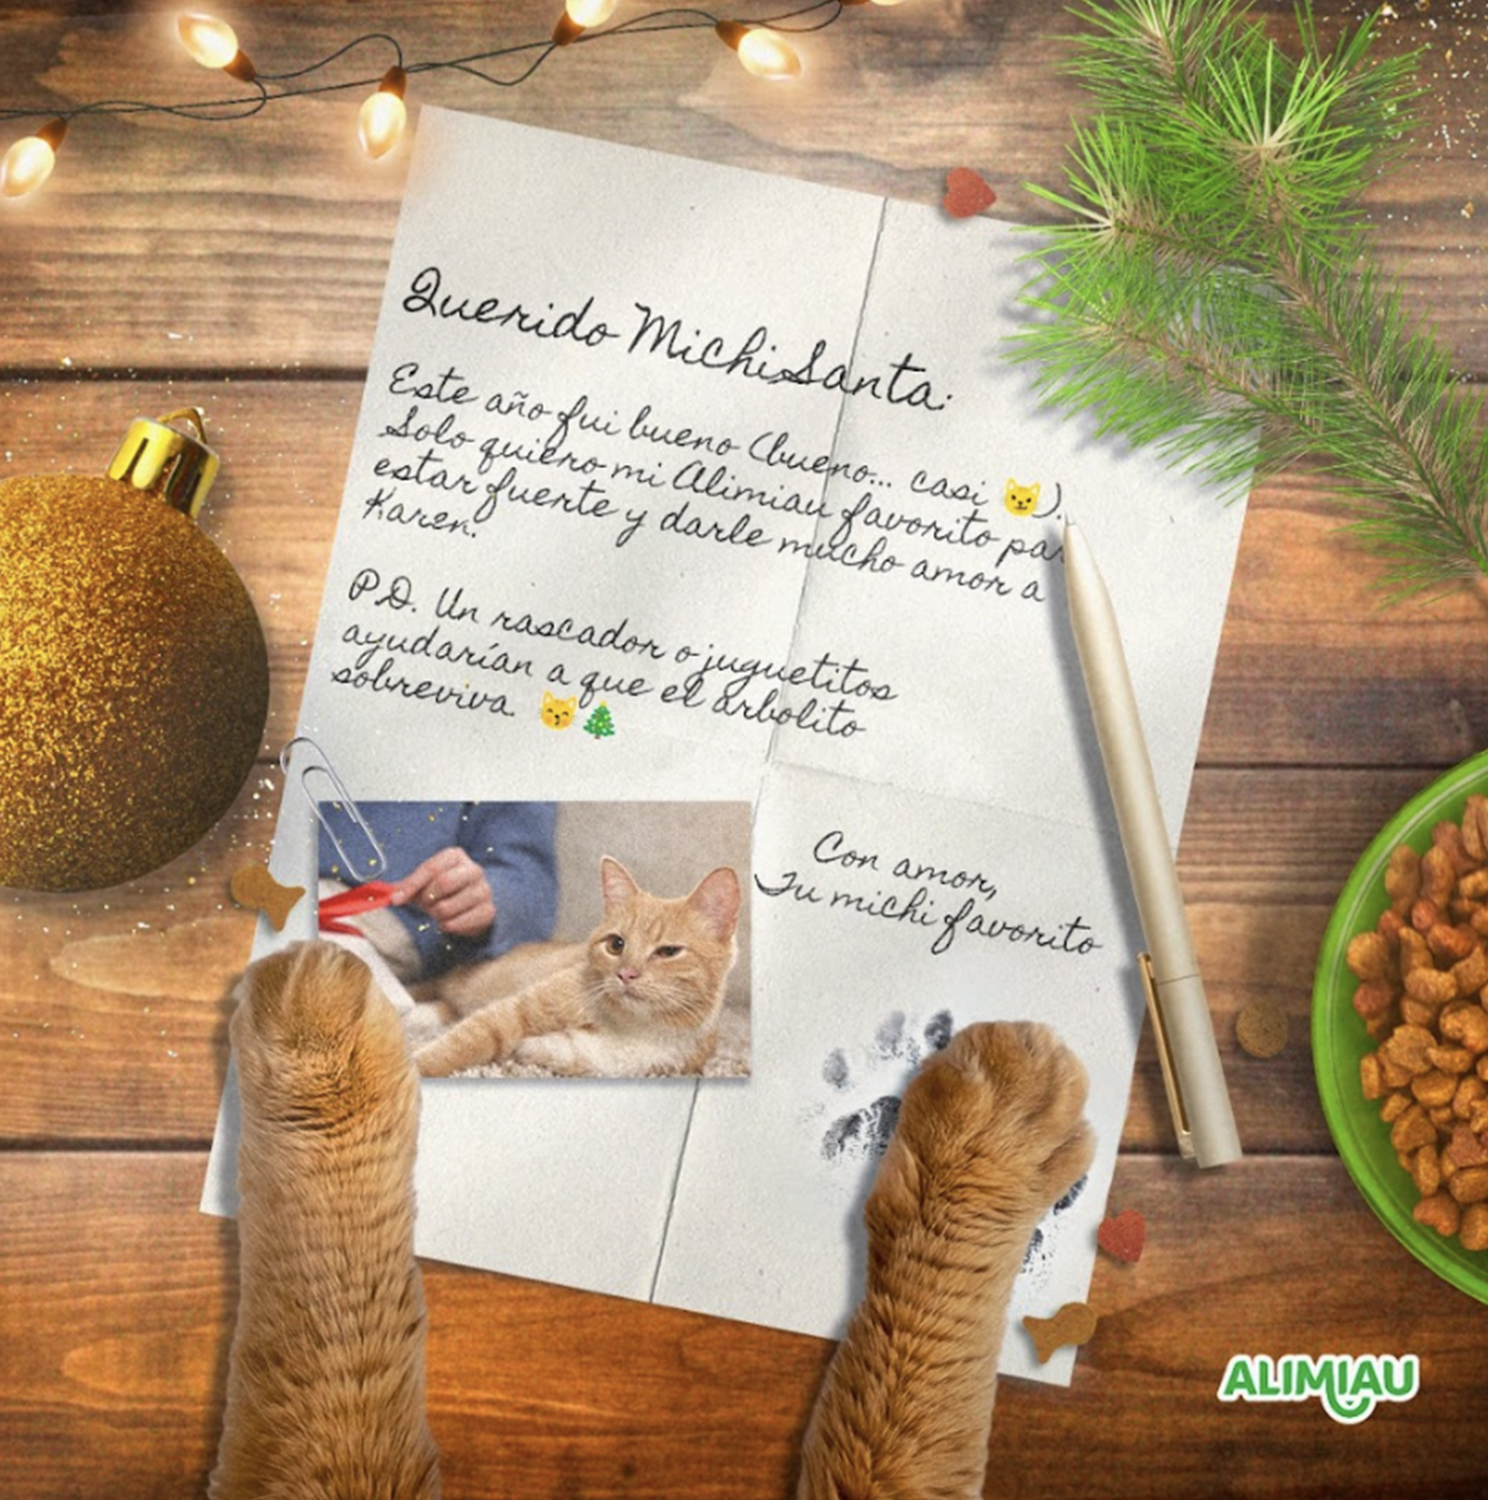 Querido MichiSanta:
Este año fui bueno (bueno... casi 😼).
Solo quiero mi Alimiau favorito par
estar fuerte y darle mucho amor a
Karen.
P.D. Un rascador o juguetitos
ayudarían a que el arbolito
sobreviva. 😽🎄
Con amor,
Tu michi favorito
ALIMIAU